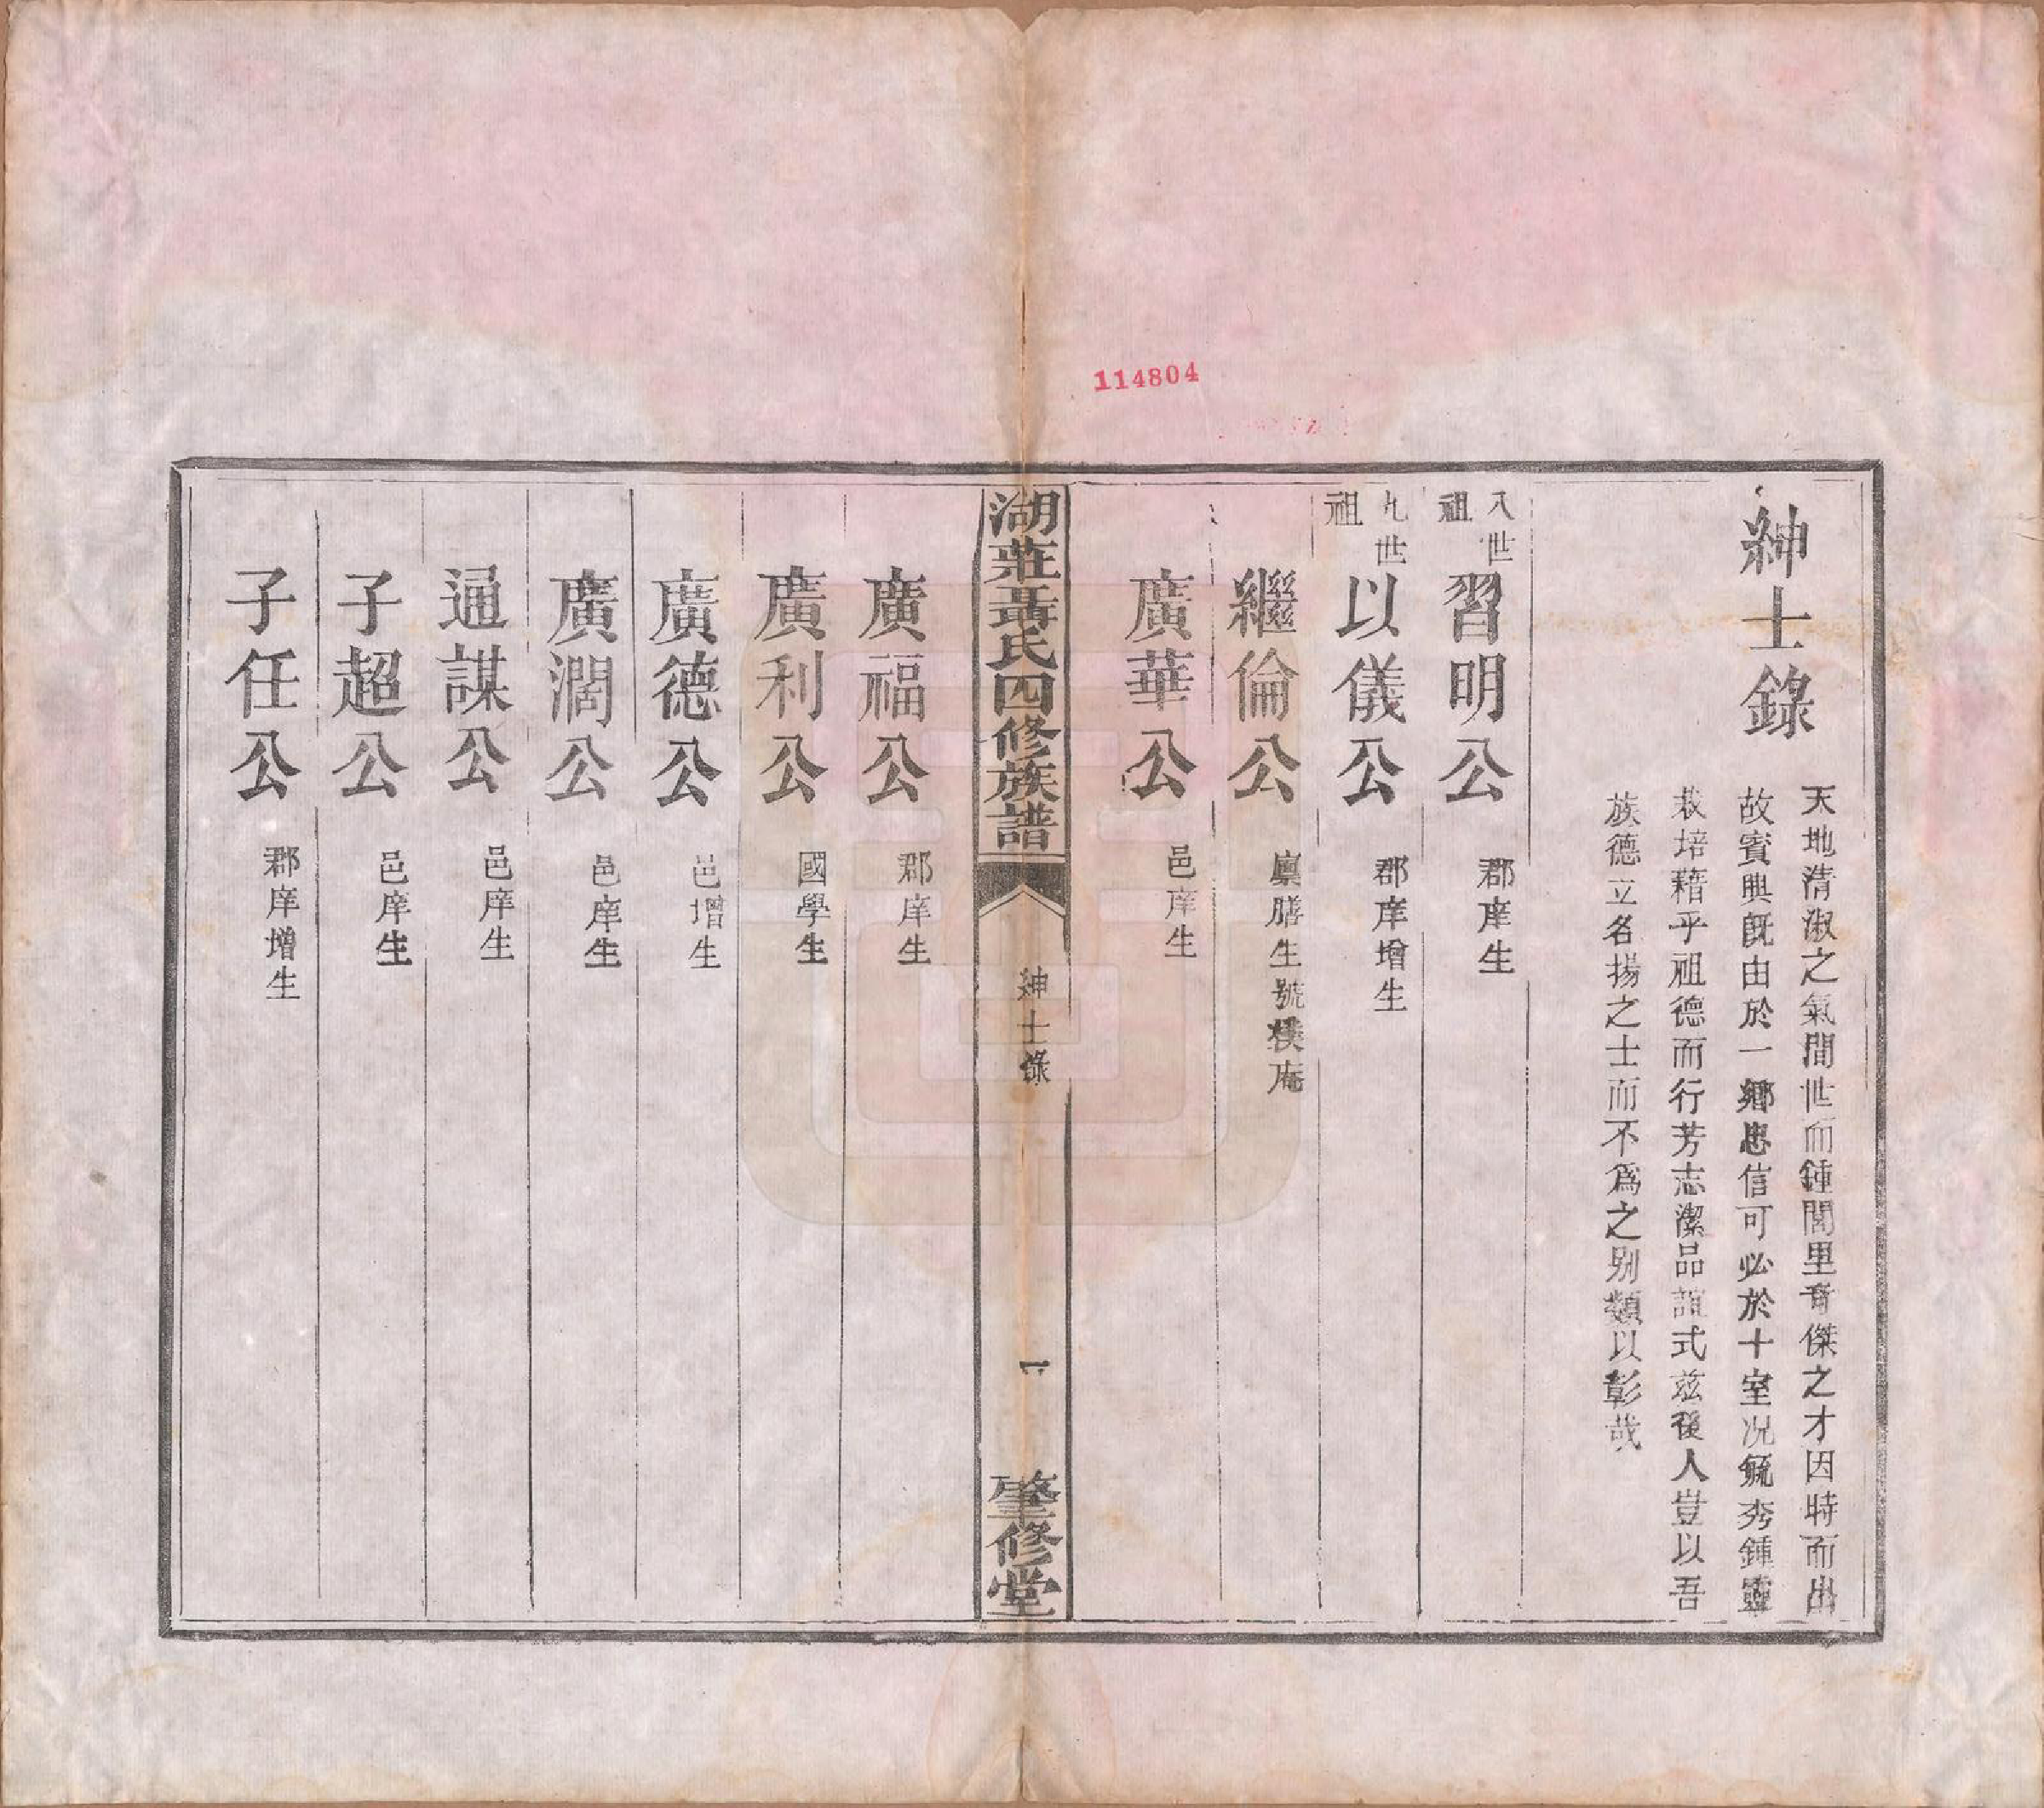 紳士錄
天地清淑之氣間世而鍾閭里奇傑之才因時而出
故賓興旣由於一鄉忠信可必於十室况毓秀鍾靈
栽培藉乎祖德而行芳志潔品誼式茲後人豈以吾
族德立名揚之士而不爲之别類以彰哉
八世祖 習明公 郡庠生
九世祖 以儀公 郡庠增生
繼倫公 廪膳生號樸庵
廣華公 邑庠生
湖莊聶氏四修族譜 紳士錄 一 肇修堂
廣福公 郡庠生
廣利公 國學生
廣德公 邑增生
廣濶公 邑庠生
通謀公 邑庠生
子超公 邑庠生
子任公 郡庠增生
114804